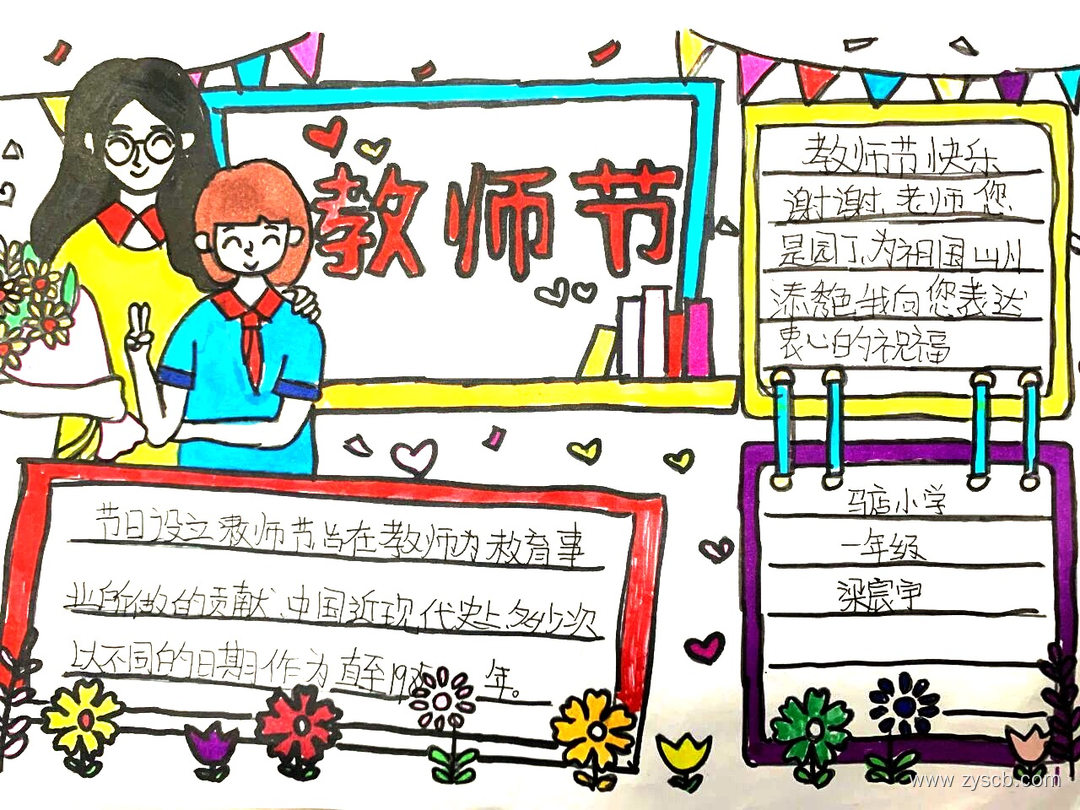 教师节
教师节快乐
谢谢,老师您,
是园丁,为祖国山川
添秀色,我向您表达
衷心的祝福
节日设立教师节,旨在教师为教育事
业所做的贡献、中国近现代史上,多少次
以不同的日期作为直至198 年。
马店小学
一年级
梁宸宇
www.zyscb.com